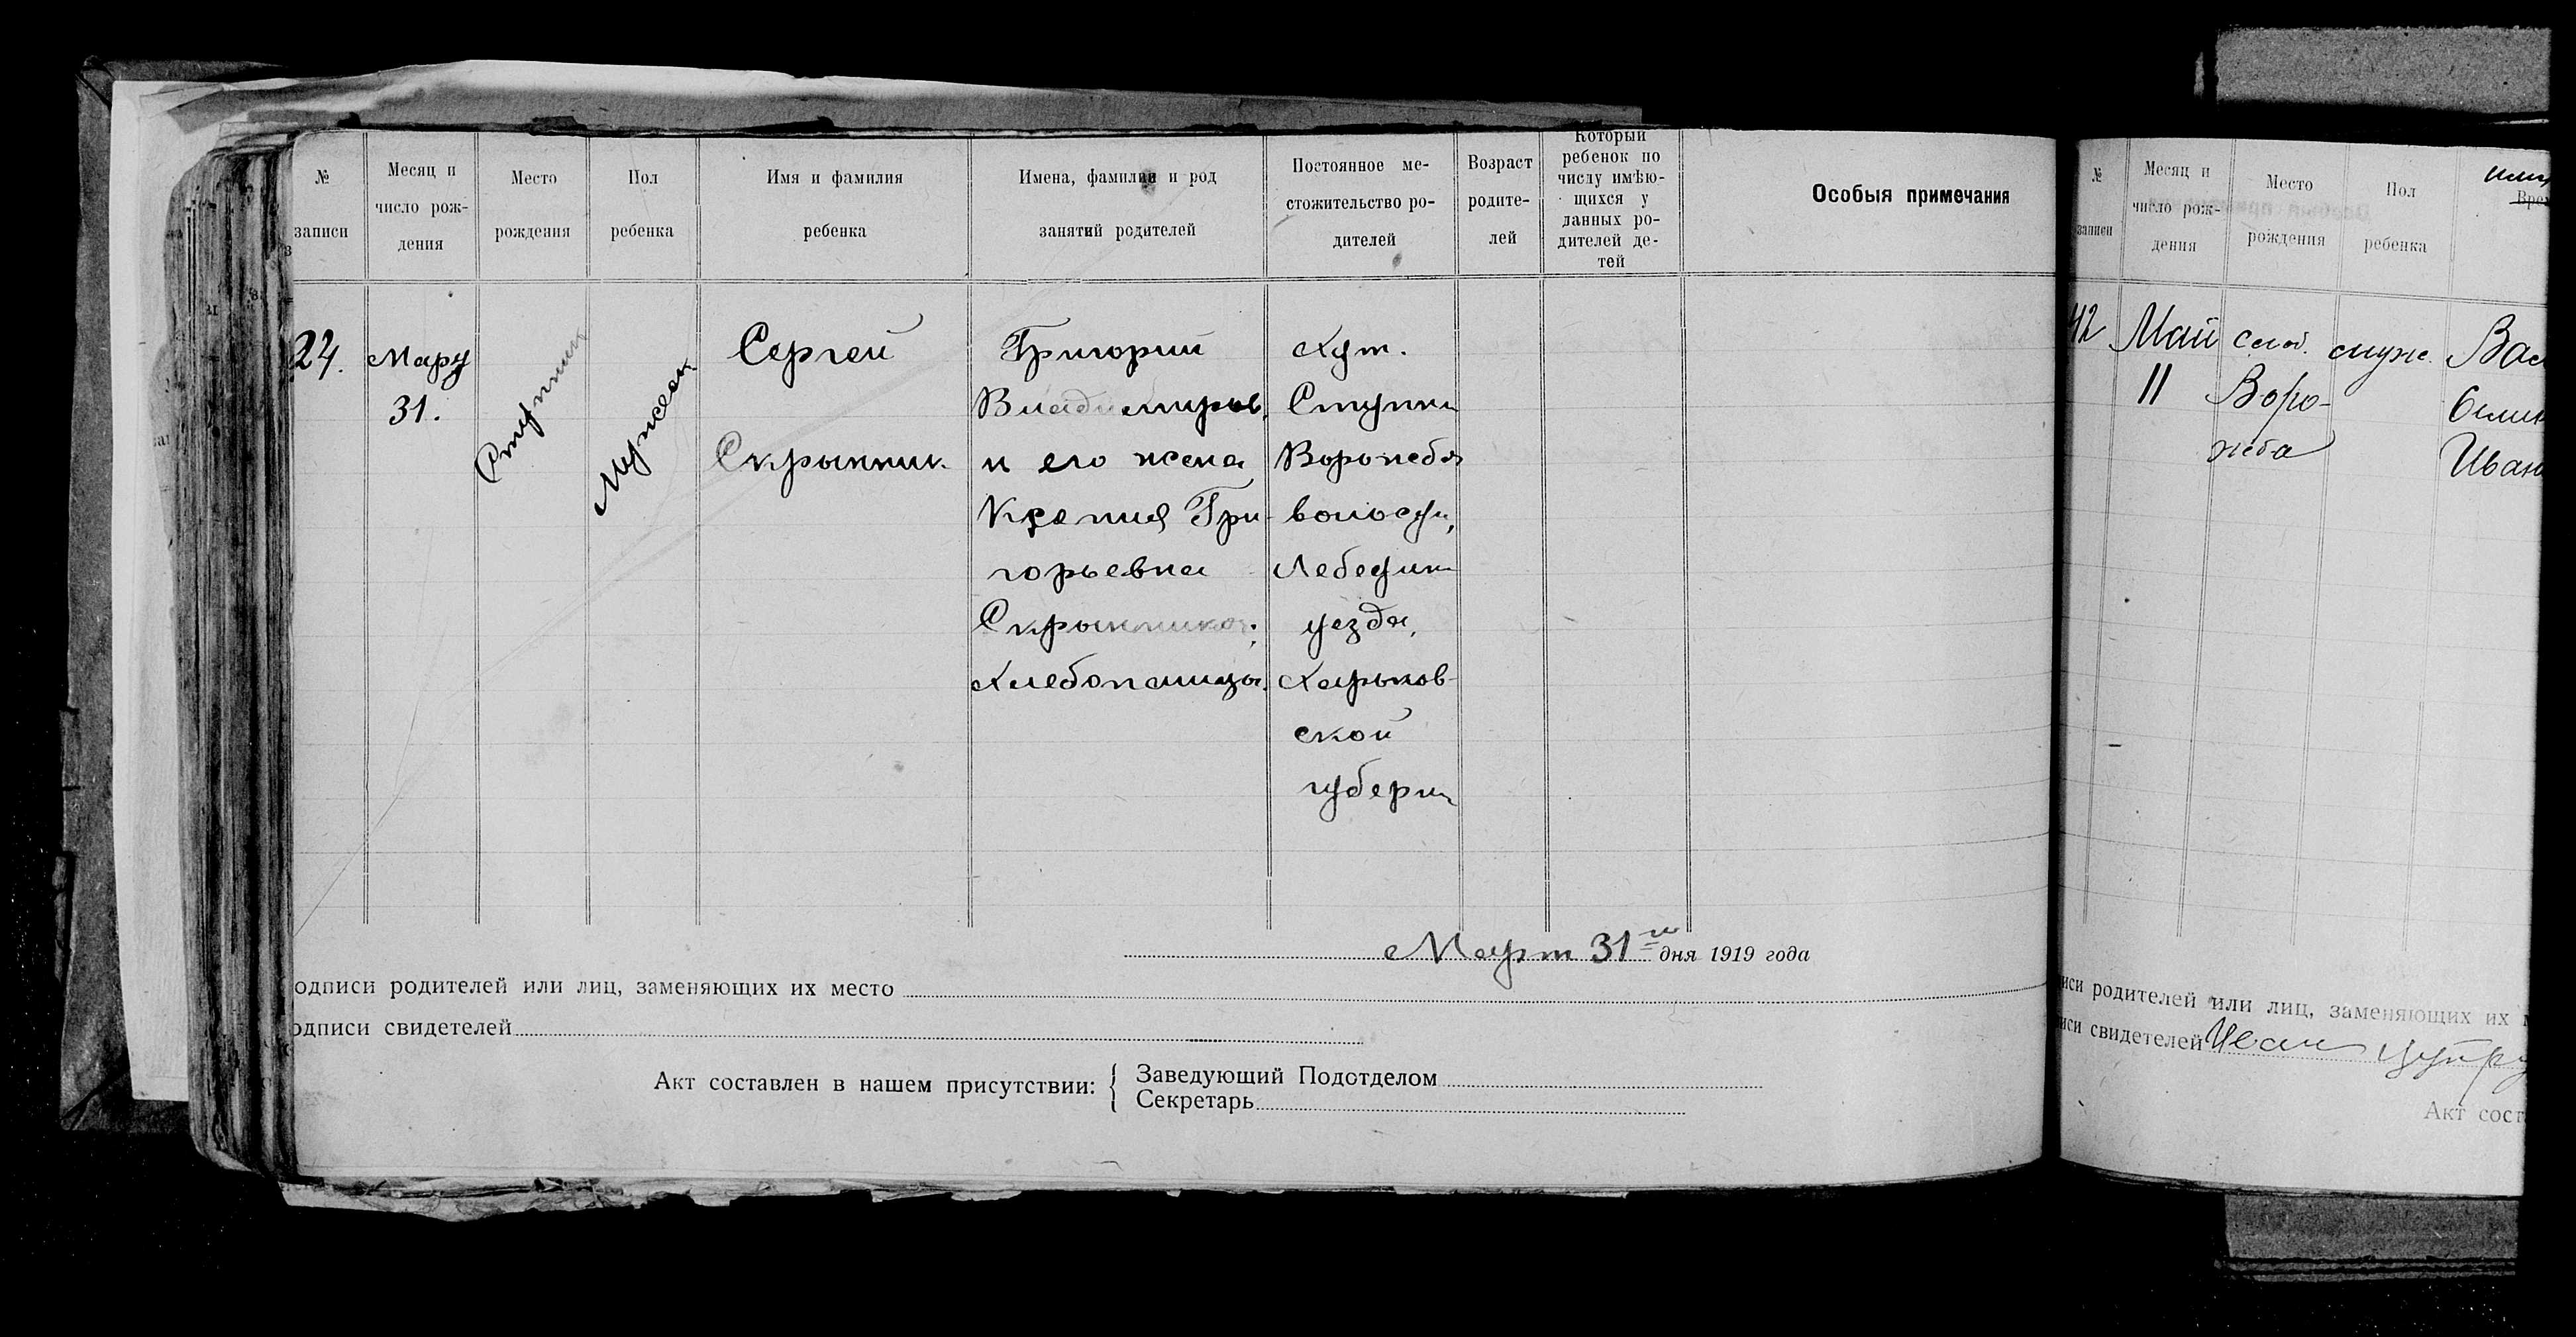 № записи
Месяц и число рождения
Место рождения
Пол ребенка
Имя и фамилия ребенка
Имена, фамилии и род занятий родителей
Постоянное местожительство родителей
Возраст родителей
Который ребенок по числу имѣющихся у данных родителей детей
Особыя примечания
24.
Март
31.
Ступки
Мужеск
Сергей
Скрынник
Григорий
Владимиров.
и его жена
Ксения Гри-
горьевна
Скрынников;
Хлебопашцы.
Хут.
Ступки
Ворожебя
волости,
Лебедин
уезда,
Харьков-
ской
губерни
Март 31го дня 1919 года
одписи родителей или лиц, заменяющих их место
одписи свидетелей
Акт составлен в нашем присутствии:
Заведующий Подотделом
Секретарь
№ записи
Месяц и число рождения
Место рождения
Пол ребенка
42
Май
11
слоб.
Воро-
жба
муже.
Вас
Иван
иси родителей или лиц, заменяющих их
иси свидетелей Иван
Акт сост